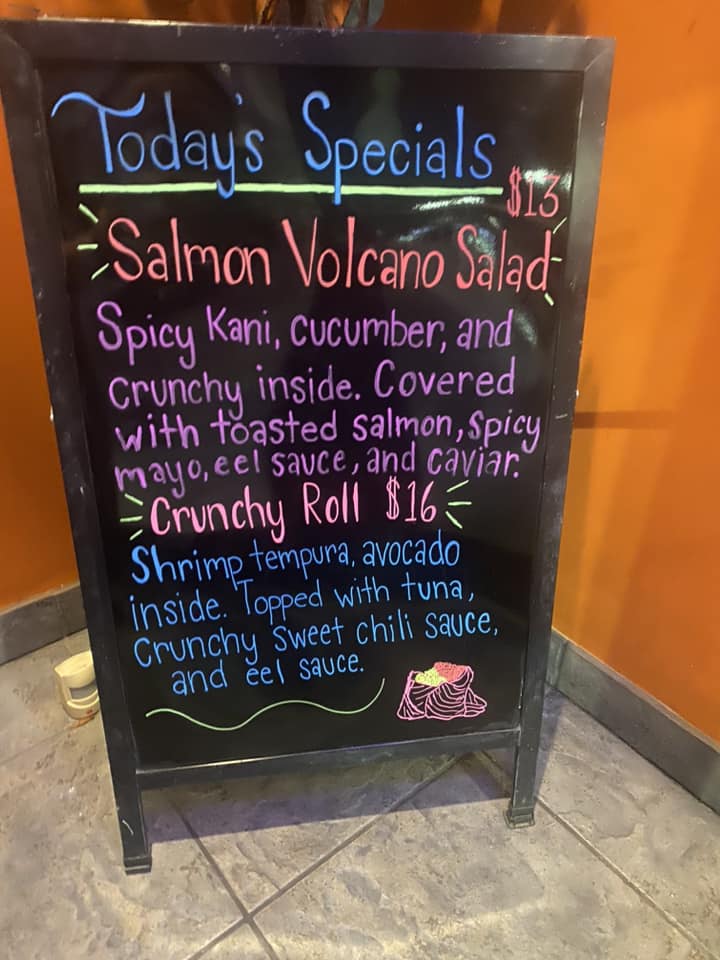 Today's Specials
$13
Salmon Volcano Salad
Spicy Kani, cucumber, and
crunchy inside. Covered
with toasted salmon, spicy
mayo, eel sauce, and caviar.
Crunchy Roll $16
Shrimp tempura, avocado
inside. Topped with tuna,
Crunchy Sweet chili sauce,
and eel sauce.